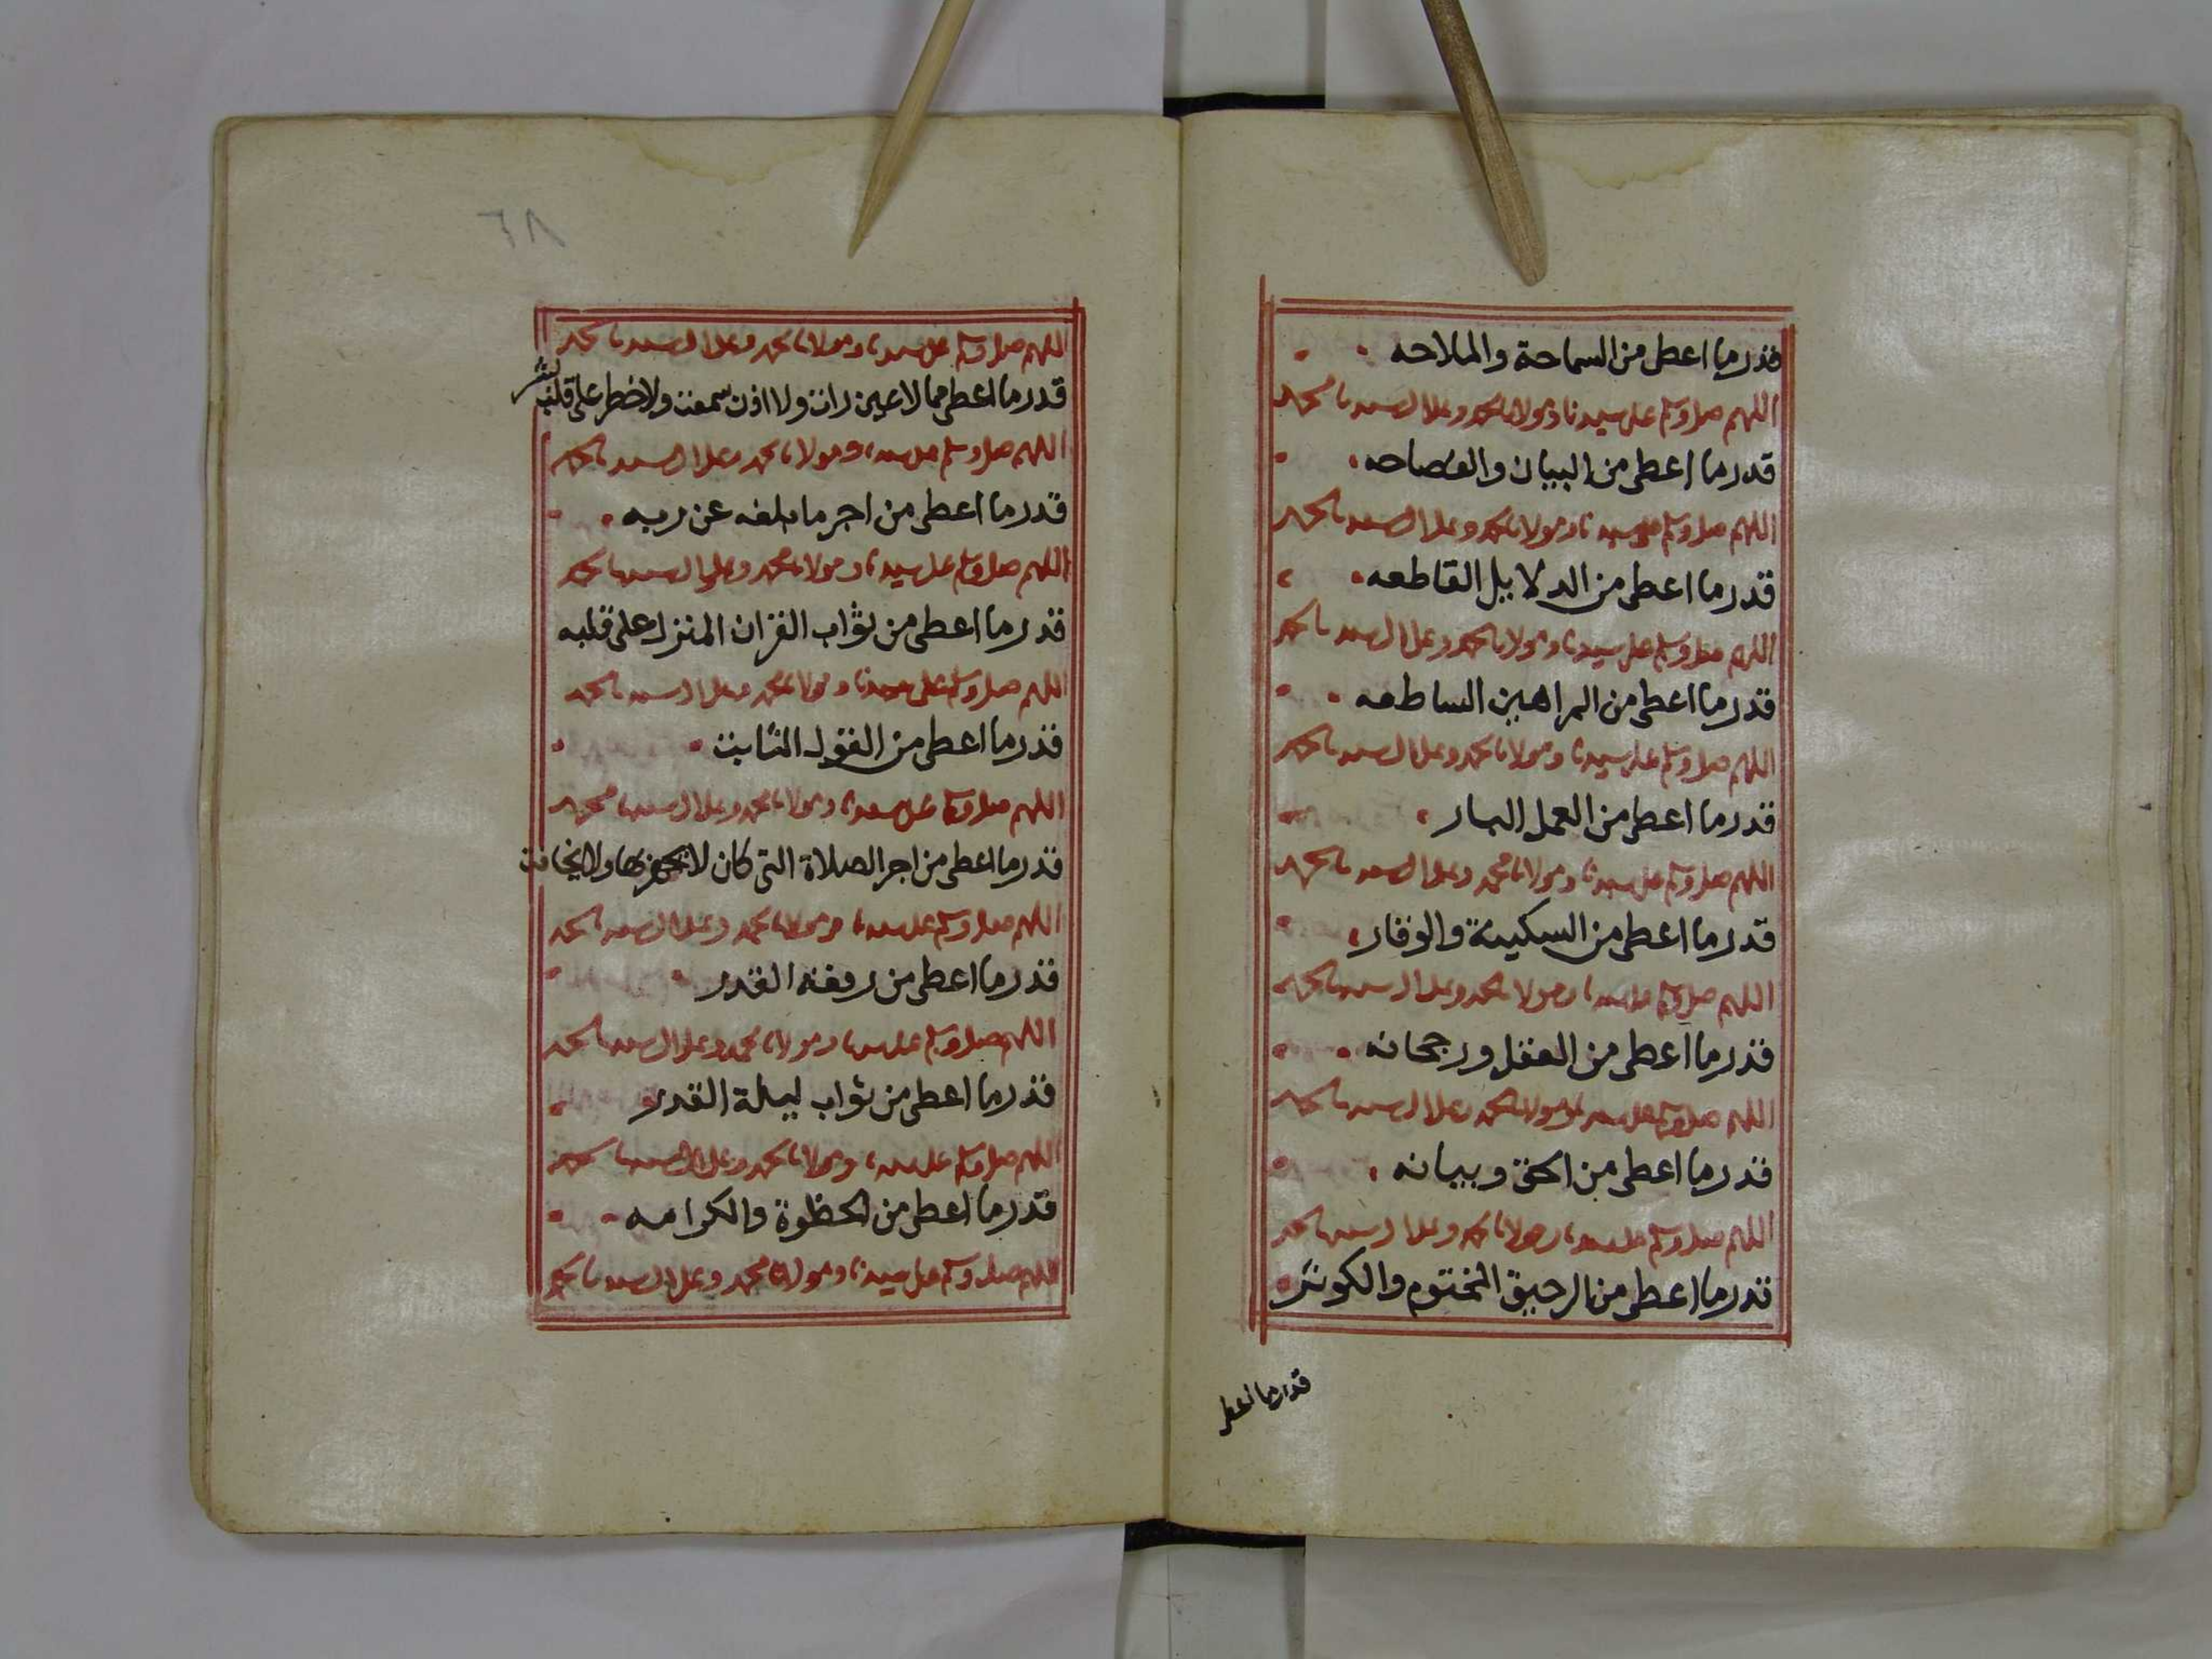 قدر ما اعطى من السماحة والملاحه
اللهم صل وسلم على سيدنا ومولانا محمد وعلى ال سيدنا محمد
قدر ما اعطى من البيان والفصاحه
اللهم صل وسلم على سيدنا ومولانا محمد وعلى ال سيدنا محمد
قدر ما اعطى من الدلايل القاطعه
اللهم صل وسلم على سيدنا ومولانا محمد وعلى ال سيدنا محمد
قدر ما اعطى من البراهين الساطعه
اللهم صل وسلم على سيدنا ومولانا محمد وعلى ال سيدنا محمد
قدر ما اعطى من العمل البار
اللهم صل وسلم على سيدنا ومولانا محمد وعلى ال سيدنا محمد
قدر ما اعطى من السكينة والوقار
اللهم صل وسلم على سيدنا ومولانا محمد وعلى ال سيدنا محمد
قدر ما اعطى من العقل ورجحانه
اللهم صل وسلم على سيدنا ومولانا محمد وعلى ال سيدنا محمد
قدر ما اعطى من الحق وبيانه
اللهم صل وسلم على سيدنا ومولانا محمد وعلى ال سيدنا محمد
قدر ما اعطى من الرحيق المختوم والكوثر
قدر ما اعطى
٦٨
اللهم صل وسلم على سيدنا ومولانا محمد وعلى ال سيدنا محمد
قدر ما اعطى مما لا عين رات ولا اذن سمعت ولا خطر على قلب بشر
اللهم صل وسلم على سيدنا ومولانا محمد وعلى ال سيدنا محمد
قدر ما اعطى من اجر ما بلغه عن ربه
اللهم صل وسلم على سيدنا ومولانا محمد وعلى ال سيدنا محمد
قدر ما اعطى من ثواب القران المنزل على قلبه
اللهم صل وسلم على سيدنا ومولانا محمد وعلى ال سيدنا محمد
قدر ما اعطى من القول الثابت
اللهم صل وسلم على سيدنا ومولانا محمد وعلى ال سيدنا محمد
قدر ما اعطى من اجر الصلاة التى كان لا يجهر بها ولا يخافت
اللهم صل وسلم على سيدنا ومولانا محمد وعلى ال سيدنا محمد
قدر ما اعطى من رفعه القدر
اللهم صل وسلم على سيدنا ومولانا محمد وعلى ال سيدنا محمد
قدر ما اعطى من ثواب ليلة القدر
اللهم صل وسلم على سيدنا ومولانا محمد وعلى ال سيدنا محمد
قدر ما اعطى من الحظوة والكرامه
اللهم صل وسلم على سيدنا ومولانا محمد وعلى ال سيدنا محمد